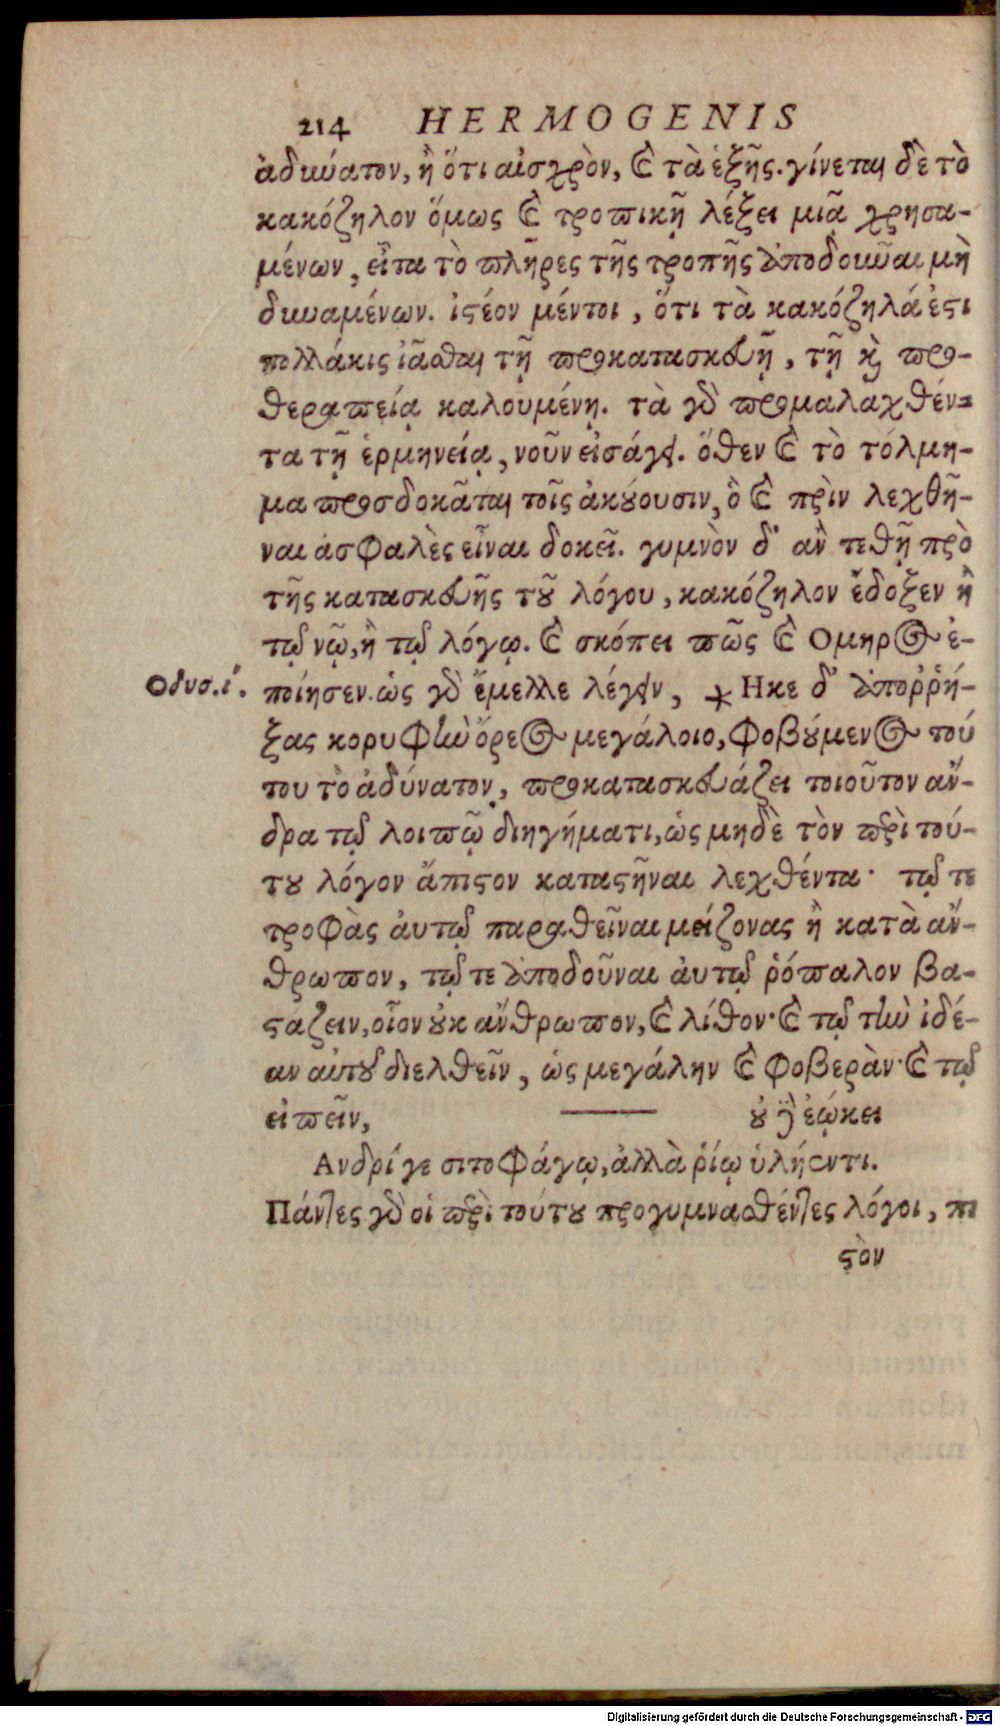 214 HERMOGENIS
ἀδύνατον, ἢ ὅτι αἰσχρὸν, καὶ τὰ ἑξῆς. γίνεται δὲ τὸ
κακόζηλον ὅμως καὶ τροπικῇ λέξει μιᾷ χρησα-
μένων, εἶτα τὸ πλῆρες τῆς τροπῆς ἀποδοῦναι μὴ
δυναμένων. ἰστέον μέντοι, ὅτι τὰ κακόζηλά ἐστι
πολλάκις ἰᾶσθαι τῇ προκατασκευῇ, τῇ καὶ προ-
θεραπείᾳ καλουμένῃ. τὰ γὰρ προμαλαχθέν-
τα τῇ ἑρμηνείᾳ, νοῦν εἰσάγει. ὅθεν καὶ τὸ τόλμη-
μα προσδοκᾶται τοῖς ἀκούουσιν, ὃ καὶ πρὶν λεχθῆ-
ναι ἀσφαλὲς εἶναι δοκεῖ. γυμνὸν δ' ἂν τεθῇ πρὸ
τῆς κατασκευῆς τοῦ λόγου, κακόζηλον ἔδοξεν ἢ
τῷ νῷ, ἢ τῷ λόγῳ. καὶ σκόπει πῶς καὶ Ομηρος ἐ-
Οδυσ.ί. ποίησεν. ὡς γὰρ ἔμελλε λέγειν, Ηκε δ' ἀποῤῥή-
ξας κορυφὴν ὄρεος μεγάλοιο, φοβούμενος τού
του τὸ ἀδύνατον, προκατασκευάζει τοιοῦτον ἄν-
δρα τῷ λοιπῷ διηγήματι, ὡς μηδὲ τὸν περὶ τού-
του λόγον ἄπιστον καταστῆναι λεχθέντα· τῷ τε
τροφὰς ἀυτῷ παραθεῖναι μείζονας ἢ κατὰ ἄν-
θρωπον, τῷ τε ἀποδοῦναι ἀυτῷ ῥόπαλον βα-
στάζειν, οἷον οὐκ ἄνθρωπον, καὶ λίθον· καὶ τῷ τὴν ἰδέ-
αν αὐτοῦ διελθεῖν, ὡς μεγάλην καὶ φοβερὰν· καὶ τῷ
εἰπεῖν, —— οὐδὲ ἐῴκει
Ανδρί γε σιτοφάγῳ, ἀλλὰ ῥίῳ ὑλήεντι.
Πάντες γὰρ οἱ περὶ τούτου προγυμνασθέντες λόγοι, πι
στὸν
Digitalisierung gefördert durch die Deutsche Forschungsgemeinschaft - DFG